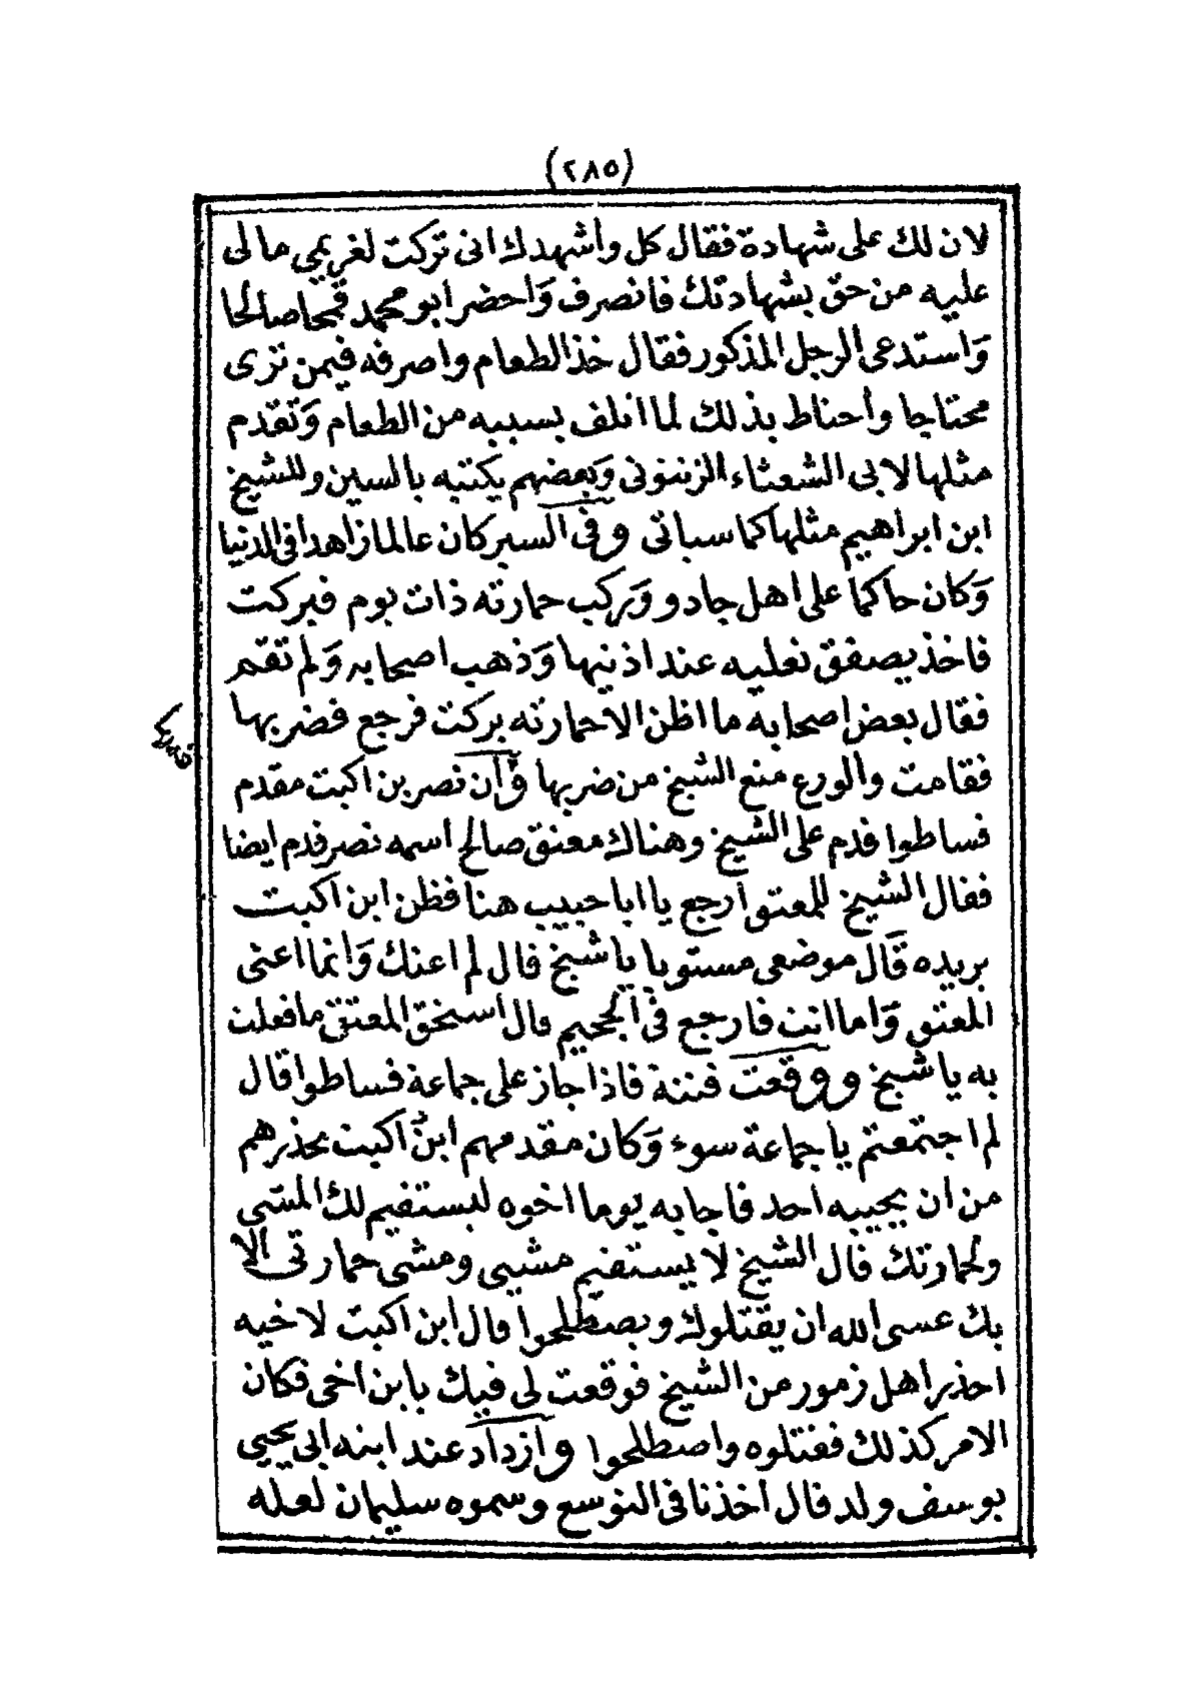 (٢٨٥)
لان لك على شهادة فقال كل وأشهدك انى تركت لغريمي مالى
عليه من حق بشهادتك فانصرف وَاحضر ابو محمد قمحا صالحا
وَاستدعى الرجل المذكور فقال خذ الطعام واصرفه فيمن ترى
محتاجا وأحتاط بذلك لما اتلف بسببه من الطعام وَتقدم
مثلها لابى الشعثاء الزنزنى وَبعضهم يكتبه بالسين وللشيخ
ابن ابراهيم مثلها كما سياتى وفى السير كان عالما زاهدا فى الدنيا
وَكان حاكما على اهل جادو وَركب حمارته ذات يوم فبركت
فاخذ يصفق نعليه عند اذنيها وَذهب اصحابه وَلم تقم
فقال بعض اصحابه ما اظن الا حمارته بركت فرجع فضربها
فقامت والورع منع الشيخ من ضربها وَأن نصر بن اكبت مقدم
فساطوا قدم على الشيخ وهناك معتق صالح اسمه نصر قدم ايضا
فقال الشيخ للمعتق ارجع يا ابا حبيب هنا فظن ابن اكبت
يريده قَال موضعى مستو يا يا شيخ قال لم اعنك وَانما اعنى
المعتق وَاما انت فارجع فى الجحيم قال استحق المعتق ما فعلت
به يا شيخ ووقعت فتنة فاذا جاز على جماعة فساطوا قال
لم اجتمعتم يا جماعة سوء وَكان مقدمهم ابن اكبت يحذرهم
من ان يجيبه احد فاجابه يوما اخوه ليستقيم لك المشى
ولحمارتك قال الشيخ لا يستقيم مشيى ومشى حمارتى الا
بك عسى الله ان يقتلوك ويصطلحوا قال ابن اكبت لاخيه
احذر اهل زمور من الشيخ فوقعت لى فيك يا بن اخى فكان
الامر كذلك فقتلوه واصطلحوا وَازداد عند ابنه ابى يحيى
يوسف ولد قال أخذنا فى التوسع وسموه سليمان لعله